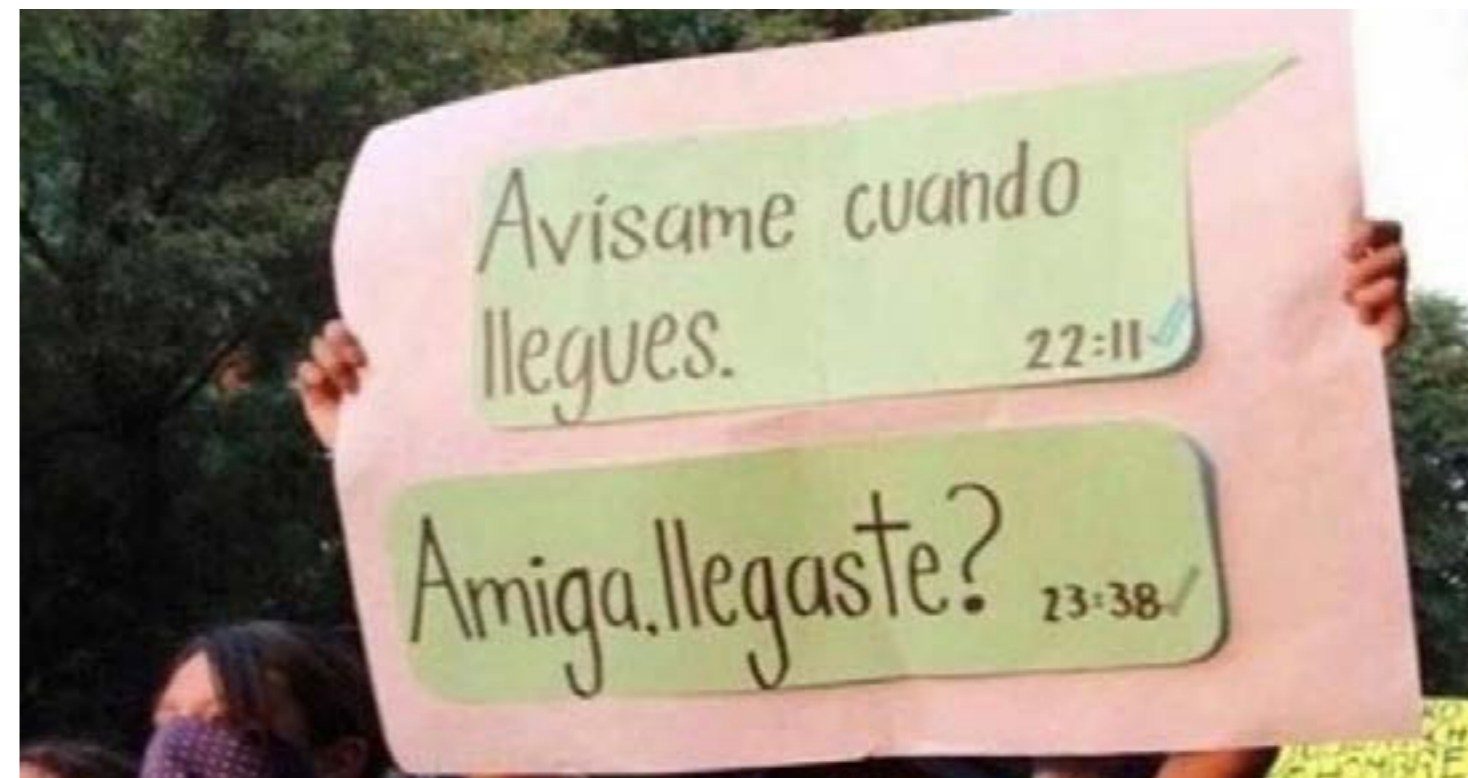 Avísame cuando
llegues. 22:11
Amiga.llegaste? 23:38